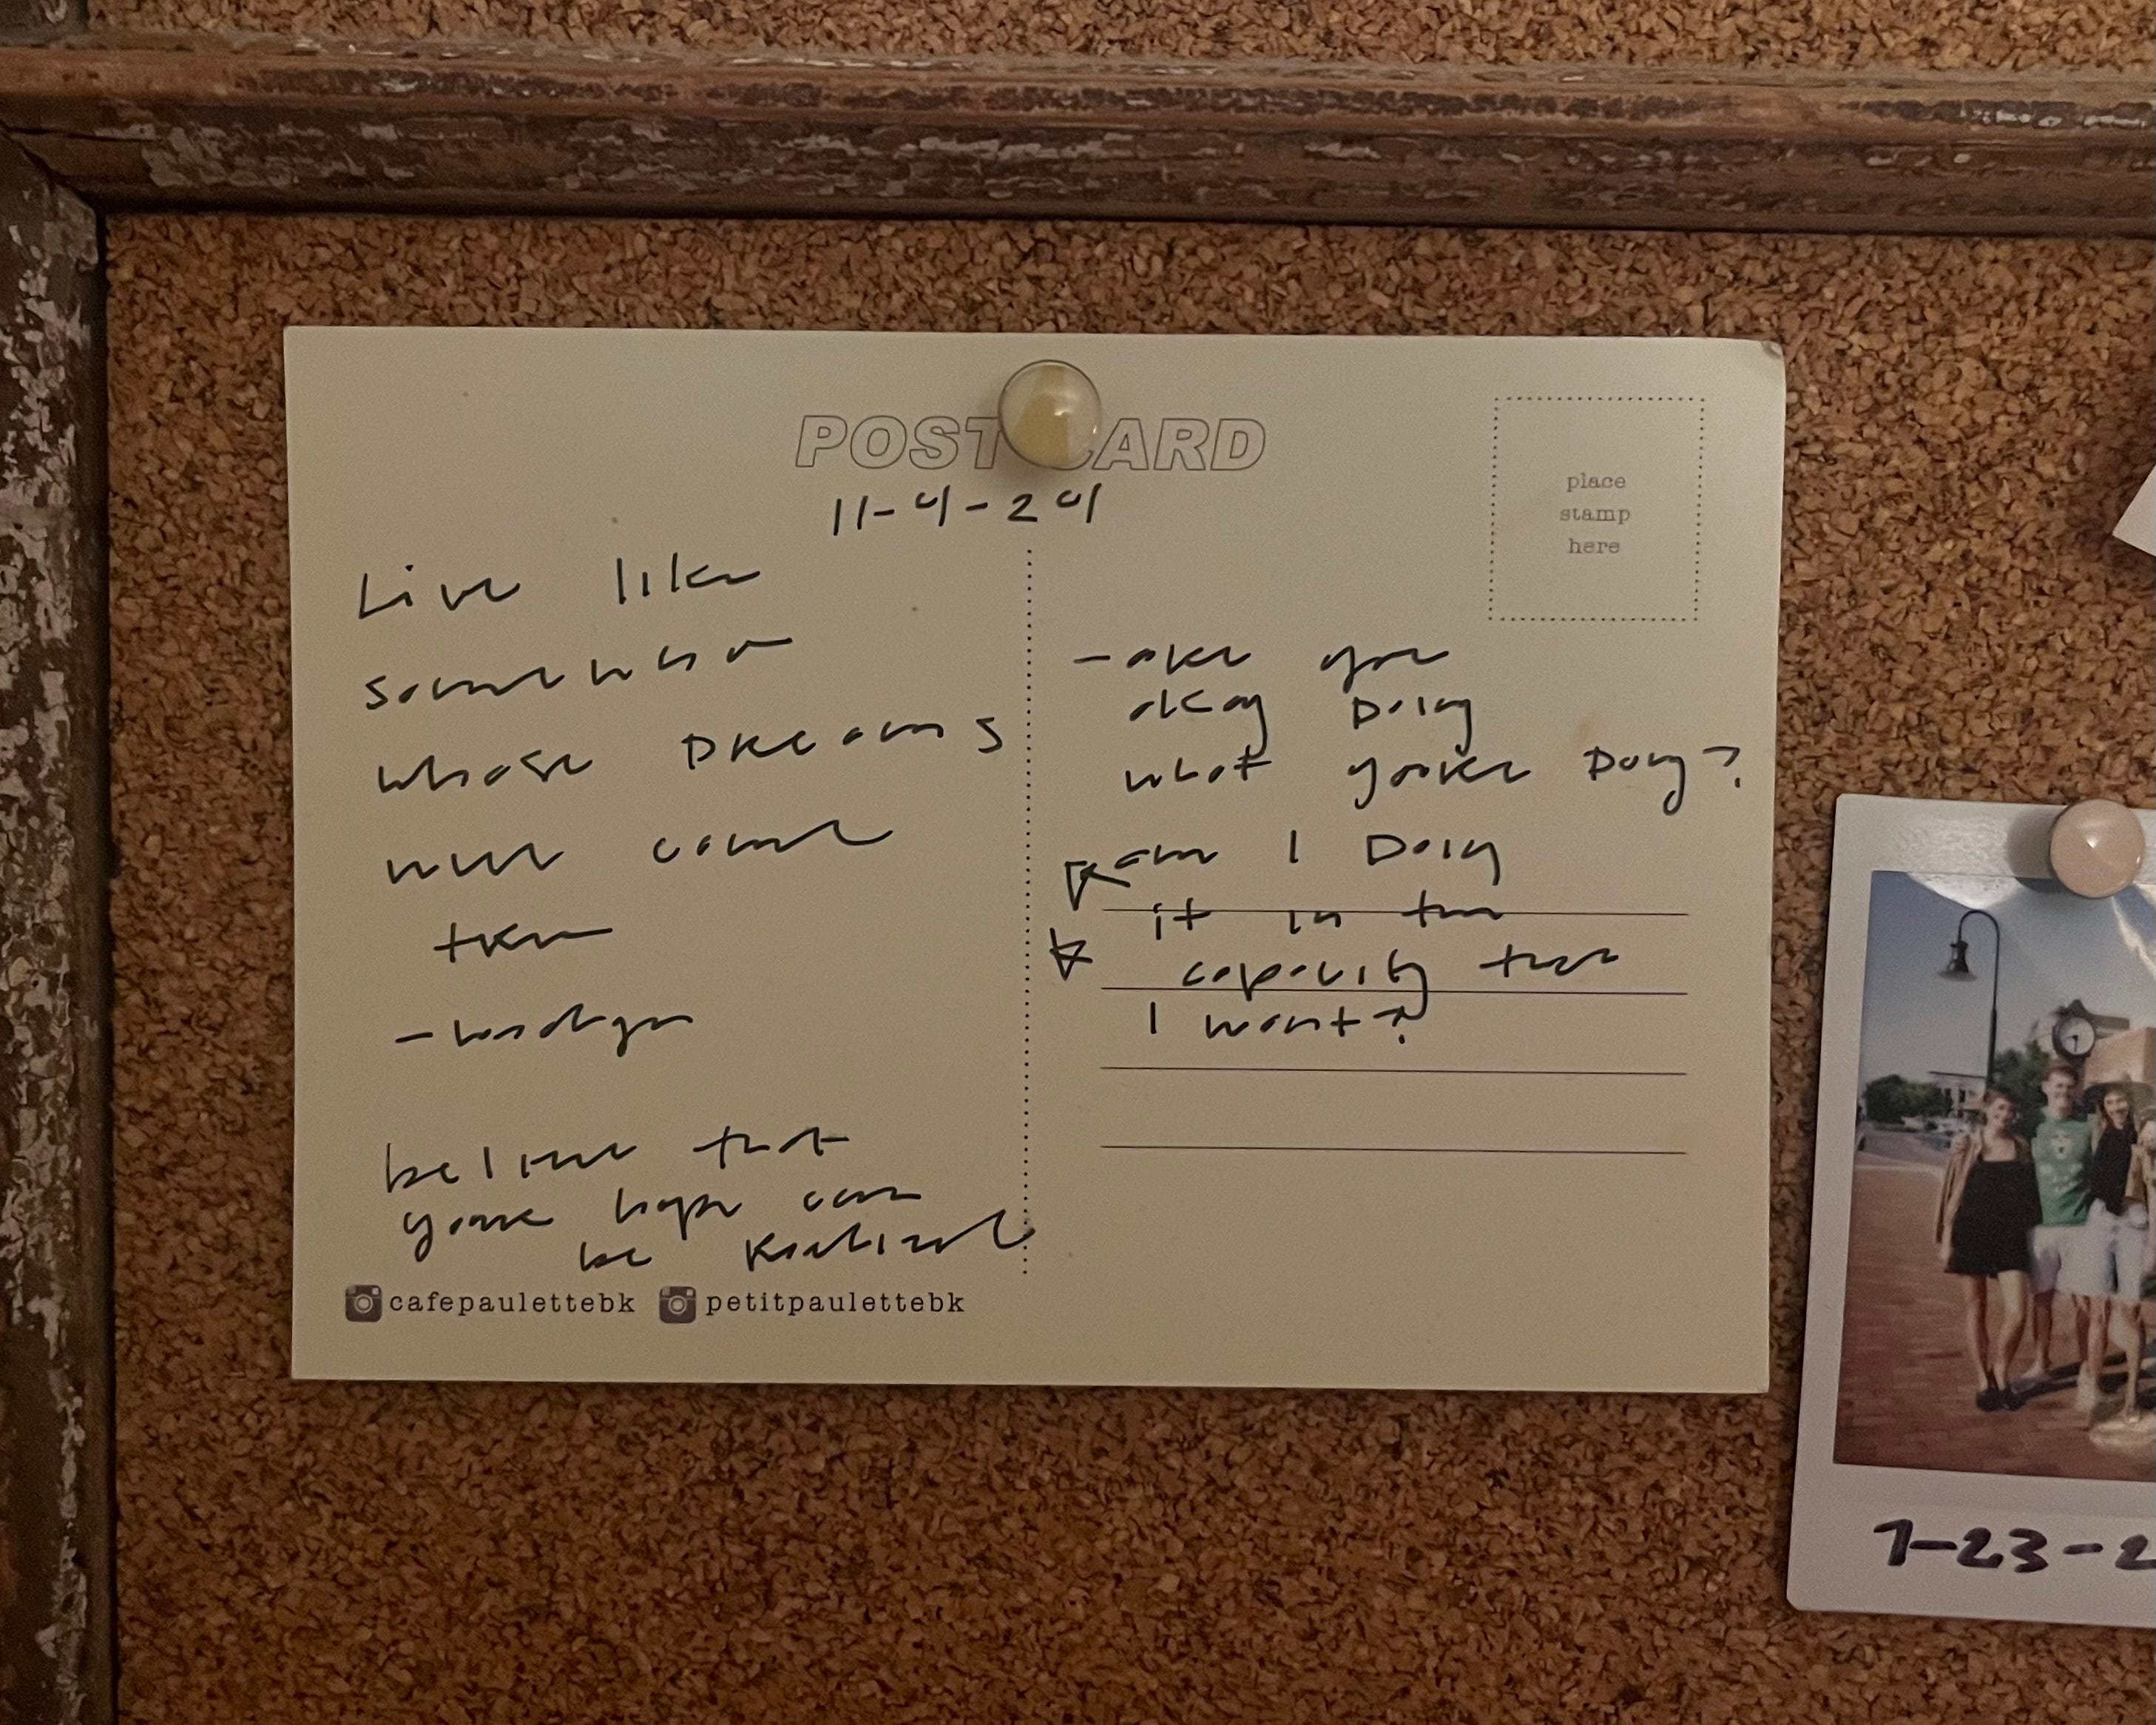 POSTCARD
11-4-24
place
stamp
here
Live like
someone who
whose Dreams
will come
true
believe that
your hope can
be Realized
cafepaulettebk petitpaulettebk
- are you
okay Doing
what you're Doing?
am I Doing
it in the
capacity that
I want?
7-23-2